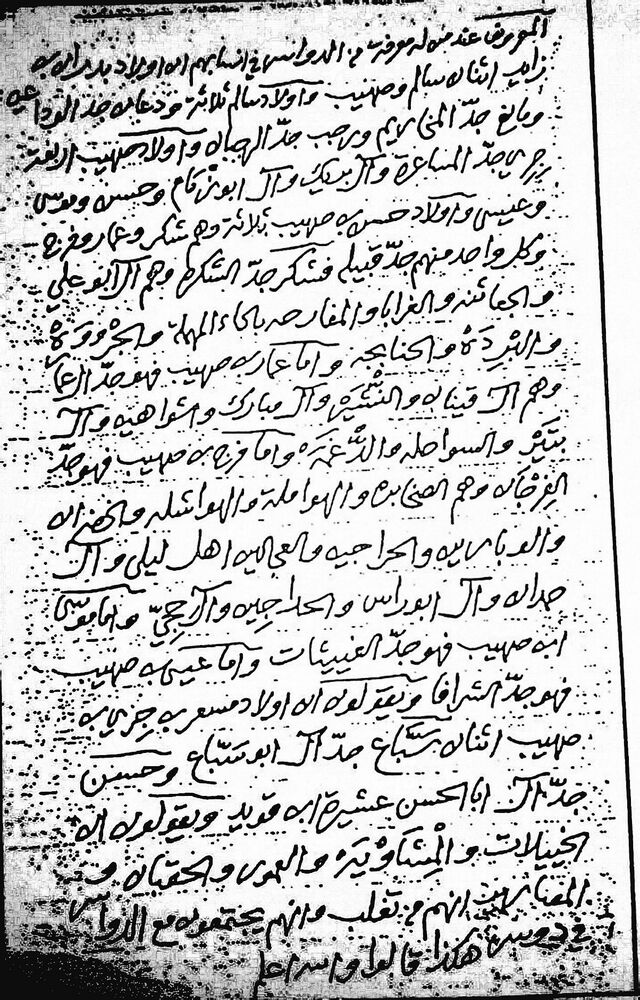 المعروف عند من له معرفة من الدواسر في انسابهم ان اولاد بدران بن
زايد اثنان سالم وصهيب واولاد سالم ثلاثة ودعان جد الوداعين
ومانع جدّ المخاريم ورجب جدّ الرجبان واولاد صهيب اربعة
جري جدّ المساعرة وآل بريك وآل ابو سكام وحسن وموسى
وعيسى واولاد حسن بن صهيب ثلاثة وهم شكر وعمار وفرج
وكل واحد منهم جدّ قبيلة فشكر جدّ الشكرة وهم آل ابو علي
والجعاثنه والغرابا والمفارحه بالحاء المهملة والجرووة
والبردة والحنابجه واما عمار بن صهيب فهو جدّ العمار
وهم آل قينان والنتيفة وآل مبارك والشواهين وآل
بتير والسواحله والدغمة واما فرج بن صهيب فهو جدّ
الفرجان وهم الصخابره والهواملة والهواشله والخضران
والوبارين والحراجين والعجالين اهل ليلى وآل
حمدان وآل ابو راس والحداجين وآل حجيّ واما موسى
ابن صهيب فهو جدّ الغييثات واما عيسى بن صهيب
فهو جدّ الشرافا ويقولون ان اولاد مسعر بن جري بن
صهيب اثنان سبّاع جدّ آل ابو سبّاع وحسن
جدّ آل ابا الحسن عشيرة ابن قويد ويقولون ان
الخييلات والمشاوية والعمور والحقبان و
المصارير انهم من تغلب وانهم يجتمعون مع الدواسر
في دوسر هكذا قالوا والله اعلم